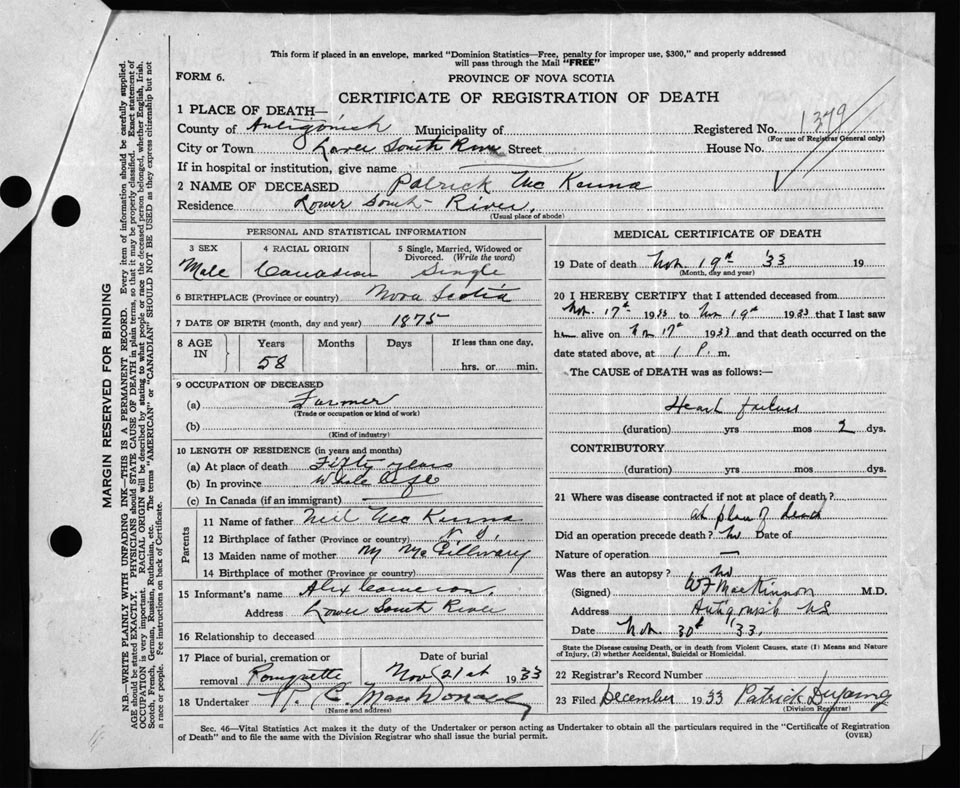 This form if placed in an envelope, marked "Dominion Statistics—Free, penalty for improper use, $300," and properly addressed
will pass through the Mail "FREE"
FORM 6.
PROVINCE OF NOVA SCOTIA
CERTIFICATE OF REGISTRATION OF DEATH
1 PLACE OF DEATH—
County of Antigonish Municipality of
Registered No. 1379
(For use of Registrar General only)
City or Town Lower South River Street House No.
If in hospital or institution, give name
2 NAME OF DECEASED Patrick Mc Kenna
Residence Lower South River.
(Usual place of abode)
PERSONAL AND STATISTICAL INFORMATION
3 SEX 4 RACIAL ORIGIN 5 Single, Married, Widowed or
Divorced. (Write the word)
Male Canadian Single
6 BIRTHPLACE (Province or country) Nova Scotia
7 DATE OF BIRTH (month, day and year) 1875
8 AGE IN Years Months Days If less than one day,
58 hrs. or min.
9 OCCUPATION OF DECEASED
(a) Farmer
(Trade or occupation or kind of work)
(b)
(Kind of industry)
10 LENGTH OF RESIDENCE (in years and months)
(a) At place of death Fifty years
(b) In province Whole life
(c) In Canada (if an immigrant)
Parents
11 Name of father Neil Mc Kenna
12 Birthplace of father (Province or country) N. S.
13 Maiden name of mother M McGillivary
14 Birthplace of mother (Province or country)
15 Informant's name Alex Cameron.
Address Lower South River
16 Relationship to deceased
17 Place of burial, cremation or Date of burial
removal Pomquette Nov 21st 1933
18 Undertaker R. C. MacDonald
(Name and address)
MEDICAL CERTIFICATE OF DEATH
19 Date of death Nov. 19th '33 19
(Month, day and year)
20 I HEREBY CERTIFY that I attended deceased from
Nov. 17th 1933 to Nov 19th 1933 that I last saw
h alive on Nov 17th 1933 and that death occurred on the
date stated above, at 1 P. m.
The CAUSE of DEATH was as follows:—
Heart failure
(duration) yrs mos 2 dys.
CONTRIBUTORY
(duration) yrs mos dys.
21 Where was disease contracted if not at place of death?
at place of death
Did an operation precede death? no Date of
Nature of operation —
Was there an autopsy? no
(Signed) WF MacKinnon M.D.
Address Antigonish NS
Date Nov. 30th '33.
State the Disease causing Death, or in death from Violent Causes, state (1) Means and Nature
of Injury, (2) whether Accidental, Suicidal or Homicidal.
22 Registrar's Record Number
23 Filed December 1933 Patrick
(Division Registrar)
Sec. 46—Vital Statistics Act makes it the duty of the Undertaker or person acting as Undertaker to obtain all the particulars required in the "Certificate of Registration
of Death" and to file the same with the Division Registrar who shall issue the burial permit.
(OVER)
MARGIN RESERVED FOR BINDING
N.B.—WRITE PLAINLY WITH UNFADING INK—THIS IS A PERMANENT RECORD. Every item of information should be carefully supplied.
AGE should be stated EXACTLY. PHYSICIANS should STATE CAUSE OF DEATH in plain terms, so that it may be properly classified. Exact statement of
OCCUPATION is very important. RACIAL ORIGIN will be described by stating to what people or race the deceased person belonged, whether English, Irish,
Scotch, French, German, Russian, Ruthenian, etc. The terms "AMERICAN" or "CANADIAN" SHOULD NOT BE USED as they express citizenship but not
a race or people. See instructions on back of Certificate.